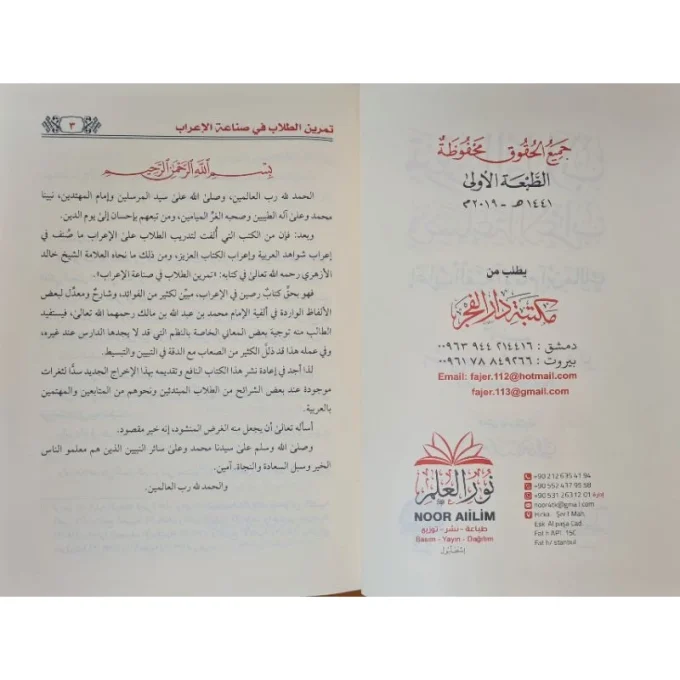 جميع الحقوق محفوظة
الطبعة الأولى
١٤٤١ هـ - ٢٠١٩ م
يطلب من
مكتبة دار الفجر
دمشق : ٢١٤٤١٦ ٩٤٤ ٠٠٩٦٣
بيروت : ٨٤٩٢٦٦ ٧٨ ٠٠٩٦١
Email: fajer.112@hotmail.com
fajer.113@gmail.com
نور العلم
NOOR AIILIM
طباعة - نشر - توزيع
Basım - Yayın - Dağıtım
إسطنبول
+90 212 635 41 94
+90 531 263 12 01
Hırka - Şerif Mah.
تمرين الطلاب في صناعة الإعراب
٣
بسم الله الرحمن الرحيم
الحمد لله رب العالمين، وصلى الله على سيد المرسلين وإمام المهتدين، نبينا
محمد وعلى آله الطيبين وصحبه الغرّ الميامين، ومن تبعهم بإحسان إلى يوم الدين.
وبعد: فإن من الكتب التي أُلفت لتدريب الطلاب على الإعراب ما صُنف في
إعراب شواهد العربية وإعراب الكتاب العزيز، ومن ذلك ما نحاه العلامة الشيخ خالد
الأزهري رحمه الله تعالى في كتابه: «تمرين الطلاب في صناعة الإعراب».
فهو بحقٍّ كتابٌ رصين في الإعراب، مبيّن لكثير من الفوائد، وشارحٌ ومعدِّل لبعض
الألفاظ الواردة في ألفية الإمام محمد بن عبد الله بن مالك رحمهما الله تعالى، فيستفيد
الطالب منه توجيه بعض المعاني الخاصة بالنظم التي قد لا يجدها الدارس عند غيره،
وفي عمله هذا قد ذلّل الكثير من الصعاب مع الدقة في التبيين والتبسيط.
لذا أجد في إعادة نشر هذا الكتاب النافع وتقديمه بهذا الإخراج الجديد سدًّا لثغرات
موجودة عند بعض الشرائح من الطلاب المبتدئين ونحوهم من المتابعين والمهتمين
بالعربية.
أسأله تعالى أن يجعل منه الغرض المنشود، إنه خير مقصود.
وصلى الله وسلم على سيدنا محمد وعلى سائر النبيين الذين هم معلمو الناس
الخير وسبل السعادة والنجاة. آمين.
والحمد لله رب العالمين.